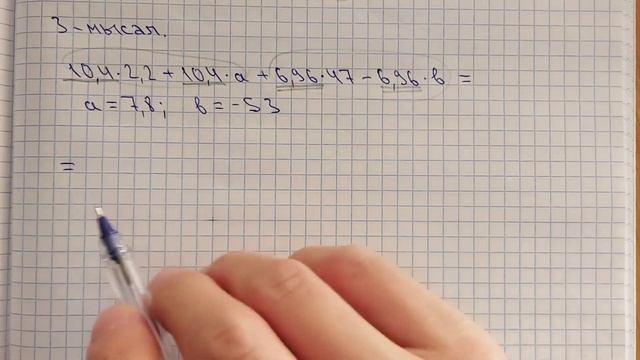 3-мысал.
10,4·2,2+10,4·a+6,96·47-6,96·b=
a=7,8; b=-53
=